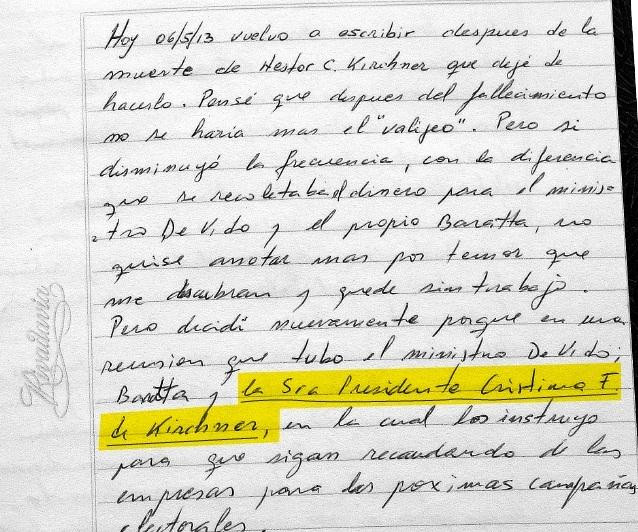 Hoy 06/5/13 vuelvo a escribir despues de la
muerte de Nestor C. Kirchner que dejé de
hacerlo. Pensé que despues del fallecimiento
no se haria mas el "valijeo". Pero si
disminuyó la frecuencia, con la diferencia
que se recoletaba el dinero para el minis-
tro De Vido y el propio Baratta, no
quise anotar mas por temor que
me descubran y quede sin trabajo.
Pero decidí nuevamente porque en una
reunion que tubo el ministro De Vido;
Baratta y la Sra Presidente Cristina F.
de Kirchner, en la cual los instruyo
para que sigan recaudando de las
empresas para las proximas campañas
electorales.
Rivadavia